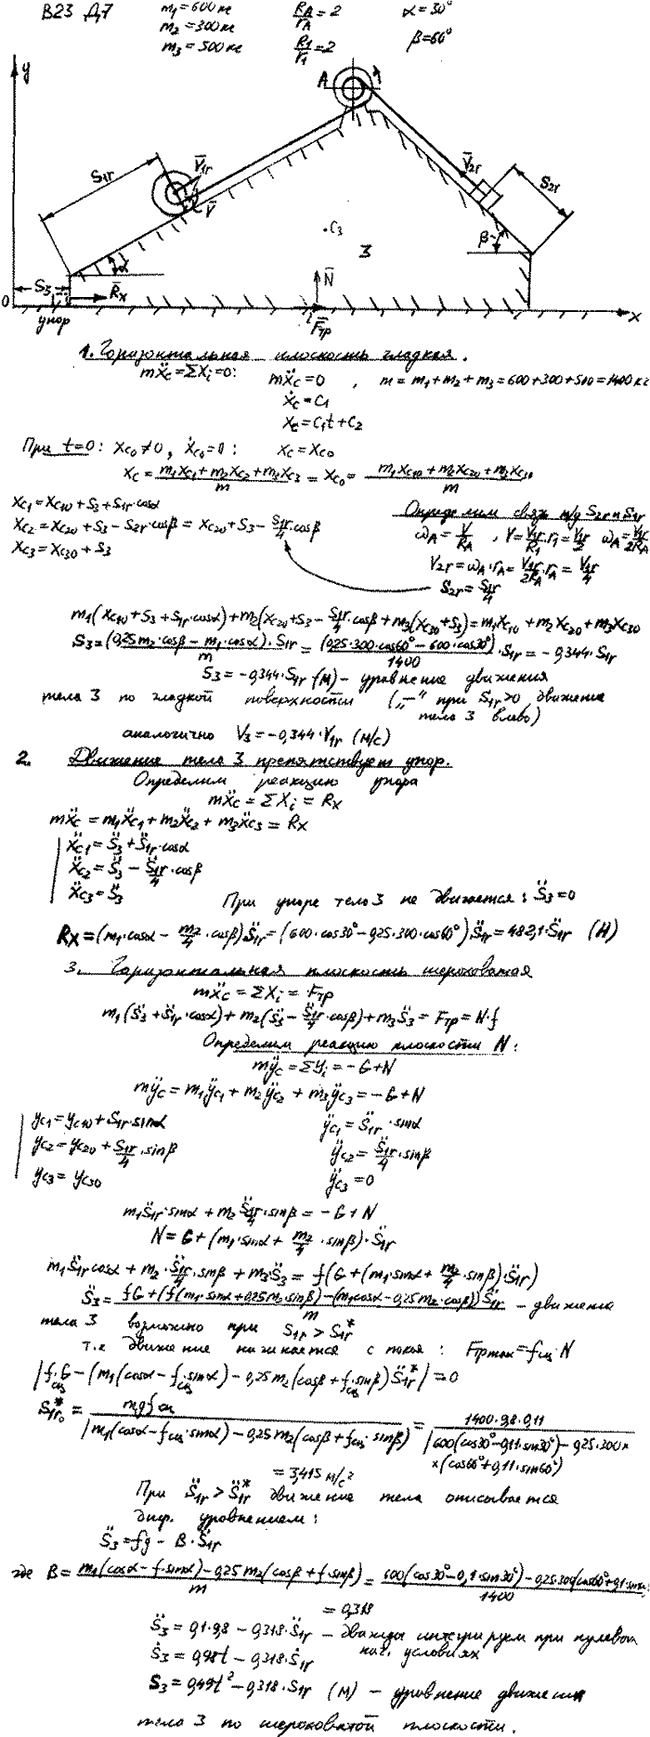 В23 Д7
m₁=600кг
m₂=300кг
m₃=500кг
R_A/r_A=2
R₁/r₁=2
α=30°
β=60°
y
A
S₁r
V̄₁r
V̄
V̄₂r
S₂r
C₃
3
β
α
S₃
R̄x
N̄
F̄тр
0
x
упор
1. Горизонтальная плоскость гладкая.
mẍc=ΣXi=0: mẍc=0 , m=m₁+m₂+m₃=600+300+500=1400кг
ẋc=C₁
xc=C₁t+C₂
При t=0: xc₀≠0, ẋc₀=0: xc=xc₀
xc=(m₁xc₁+m₂xc₂+m₃xc₃)/m=xc₀=(m₁xc₁₀+m₂xc₂₀+m₃xc₃₀)/m
xc₁=xc₁₀+S₃+S₁r·cosα
xc₂=xc₂₀+S₃-S₂r·cosβ=xc₂₀+S₃-S₁r/4·cosβ
xc₃=xc₃₀+S₃
Определим связь м/у S₂r и S₁r
ω_A=V/R_A , V=V₁r/R₁·r₁=V₁r/2 ω_A=V₁r/2R_A
V₂r=ω_A·r_A=V₁r/2R_A·r_A=V₁r/4
S₂r=S₁r/4
m₁(xc₁₀+S₃+S₁r·cosα)+m₂(xc₂₀+S₃-S₁r/4·cosβ+m₃(xc₃₀+S₃)=m₁xc₁₀+m₂xc₂₀+m₃xc₃₀
S₃=(0,25m₂·cosβ-m₁·cosα)·S₁r/m=(0,25·300·cos60°-600·cos30°)/1400·S₁r=-0,344·S₁r
S₃=-0,344·S₁r (м) - уравнение движения
тела 3 по гладкой поверхности („-" при S₁r>0 движение
тела 3 влево)
аналогично V₃=-0,344·V₁r (м/с)
2. Движению тела 3 препятствует упор.
Определим реакцию упора
mẍc=ΣXi=Rx
mẍc=m₁ẍc₁+m₂ẍc₂+m₃ẍc₃=Rx
ẍc₁=S̈₃+S̈₁r·cosα
ẍc₂=S̈₃-S̈₁r/4·cosβ
ẍc₃=S̈₃
При упоре тело 3 не движется: S̈₃=0
Rx=(m₁·cosα-m₂/4·cosβ)S̈₁r=(600·cos30°-0,25·300·cos60°)S̈₁r=482,1·S̈₁r (Н)
3. Горизонтальная плоскость шероховатая
mẍc=ΣXi=Fтр
m₁(S̈₃+S̈₁r·cosα)+m₂(S̈₃-S̈₁r/4·cosβ)+m₃S̈₃=Fтр=N·f
Определим реакцию плоскости N:
mÿc=ΣYi=-G+N
mÿc=m₁ÿc₁+m₂ÿc₂+m₃ÿc₃=-G+N
yc₁=yc₁₀+S₁r·sinα
yc₂=yc₂₀+S₁r/4·sinβ
yc₃=yc₃₀
ÿc₁=S̈₁r·sinα
ÿc₂=S̈₁r/4·sinβ
ÿc₃=0
m₁S̈₁r·sinα+m₂S̈₁r/4·sinβ=-G+N
N=G+(m₁·sinα+m₂/4·sinβ)·S̈₁r
m₁S̈₁rcosα+m₂·S̈₁r/4·sinβ+m₃·S̈₃=f(G+(m₁sinα+m₂/4·sinβ)S̈₁r)
S̈₃=(fG+(f(m₁·sinα+0,25m₂sinβ)-(m₁cosα-0,25m₂·cosβ))S̈₁r)/m - движение
тела 3 возможно при S₁r>S̈₁r*
т.к движение начинается с покоя: Fтрmax=fсц·N
|fсц·G-(m₁(cosα-fсц·sinα)-0,25m₂(cosβ+fсц·sinβ)S̈₁r*|=0
S̈₁r₀*=mgfсц/|m₁(cosα-fсц·sinα)-0,25m₂(cosβ+fсц·sinβ)|=1400·9,8·0,11/|600(cos30°-0,11·sin30°)-0,25·300×
×(cos60°+0,11·sin60°)
=3,415 м/с²
При S̈₁r>S̈₁r* движение тела описывается
диф. уравнением:
S̈₃=fg-B·S̈₁r
где B=(m₁(cosα-f·sinα)-0,25m₂(cosβ+f·sinβ))/m=(600(cos30°-0,1·sin30°)-0,25·300(cos60°+0,1·sin60°)/1400
=0,318
S̈₃=0,1·9,8-0,318·S̈₁r - дважды интегрируем при нулевых
нач. условиях
Ṡ₃=0,98t-0,318·Ṡ₁r
S₃=0,49t²-0,318·S₁r (м) - уравнение движения
тела 3 по шероховатой плоскости.